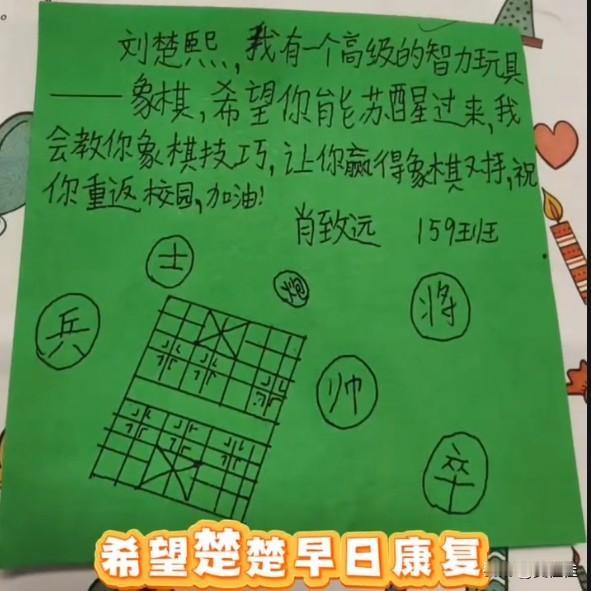 刘楚熙,我有一个高级的智力玩具
——象棋,希望你能苏醒过来,我
会教你象棋技巧,让你赢得象棋对手,祝
你重返校园,加油!
肖致远 1591班
士
炮
将
兵
帅
卒
希望楚楚早日康复